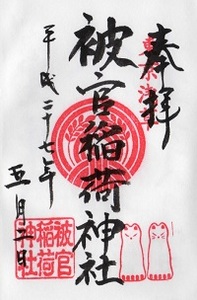 奉拝
被官稲荷神社
平成二十七年
五月二日
被官
稲荷
神社